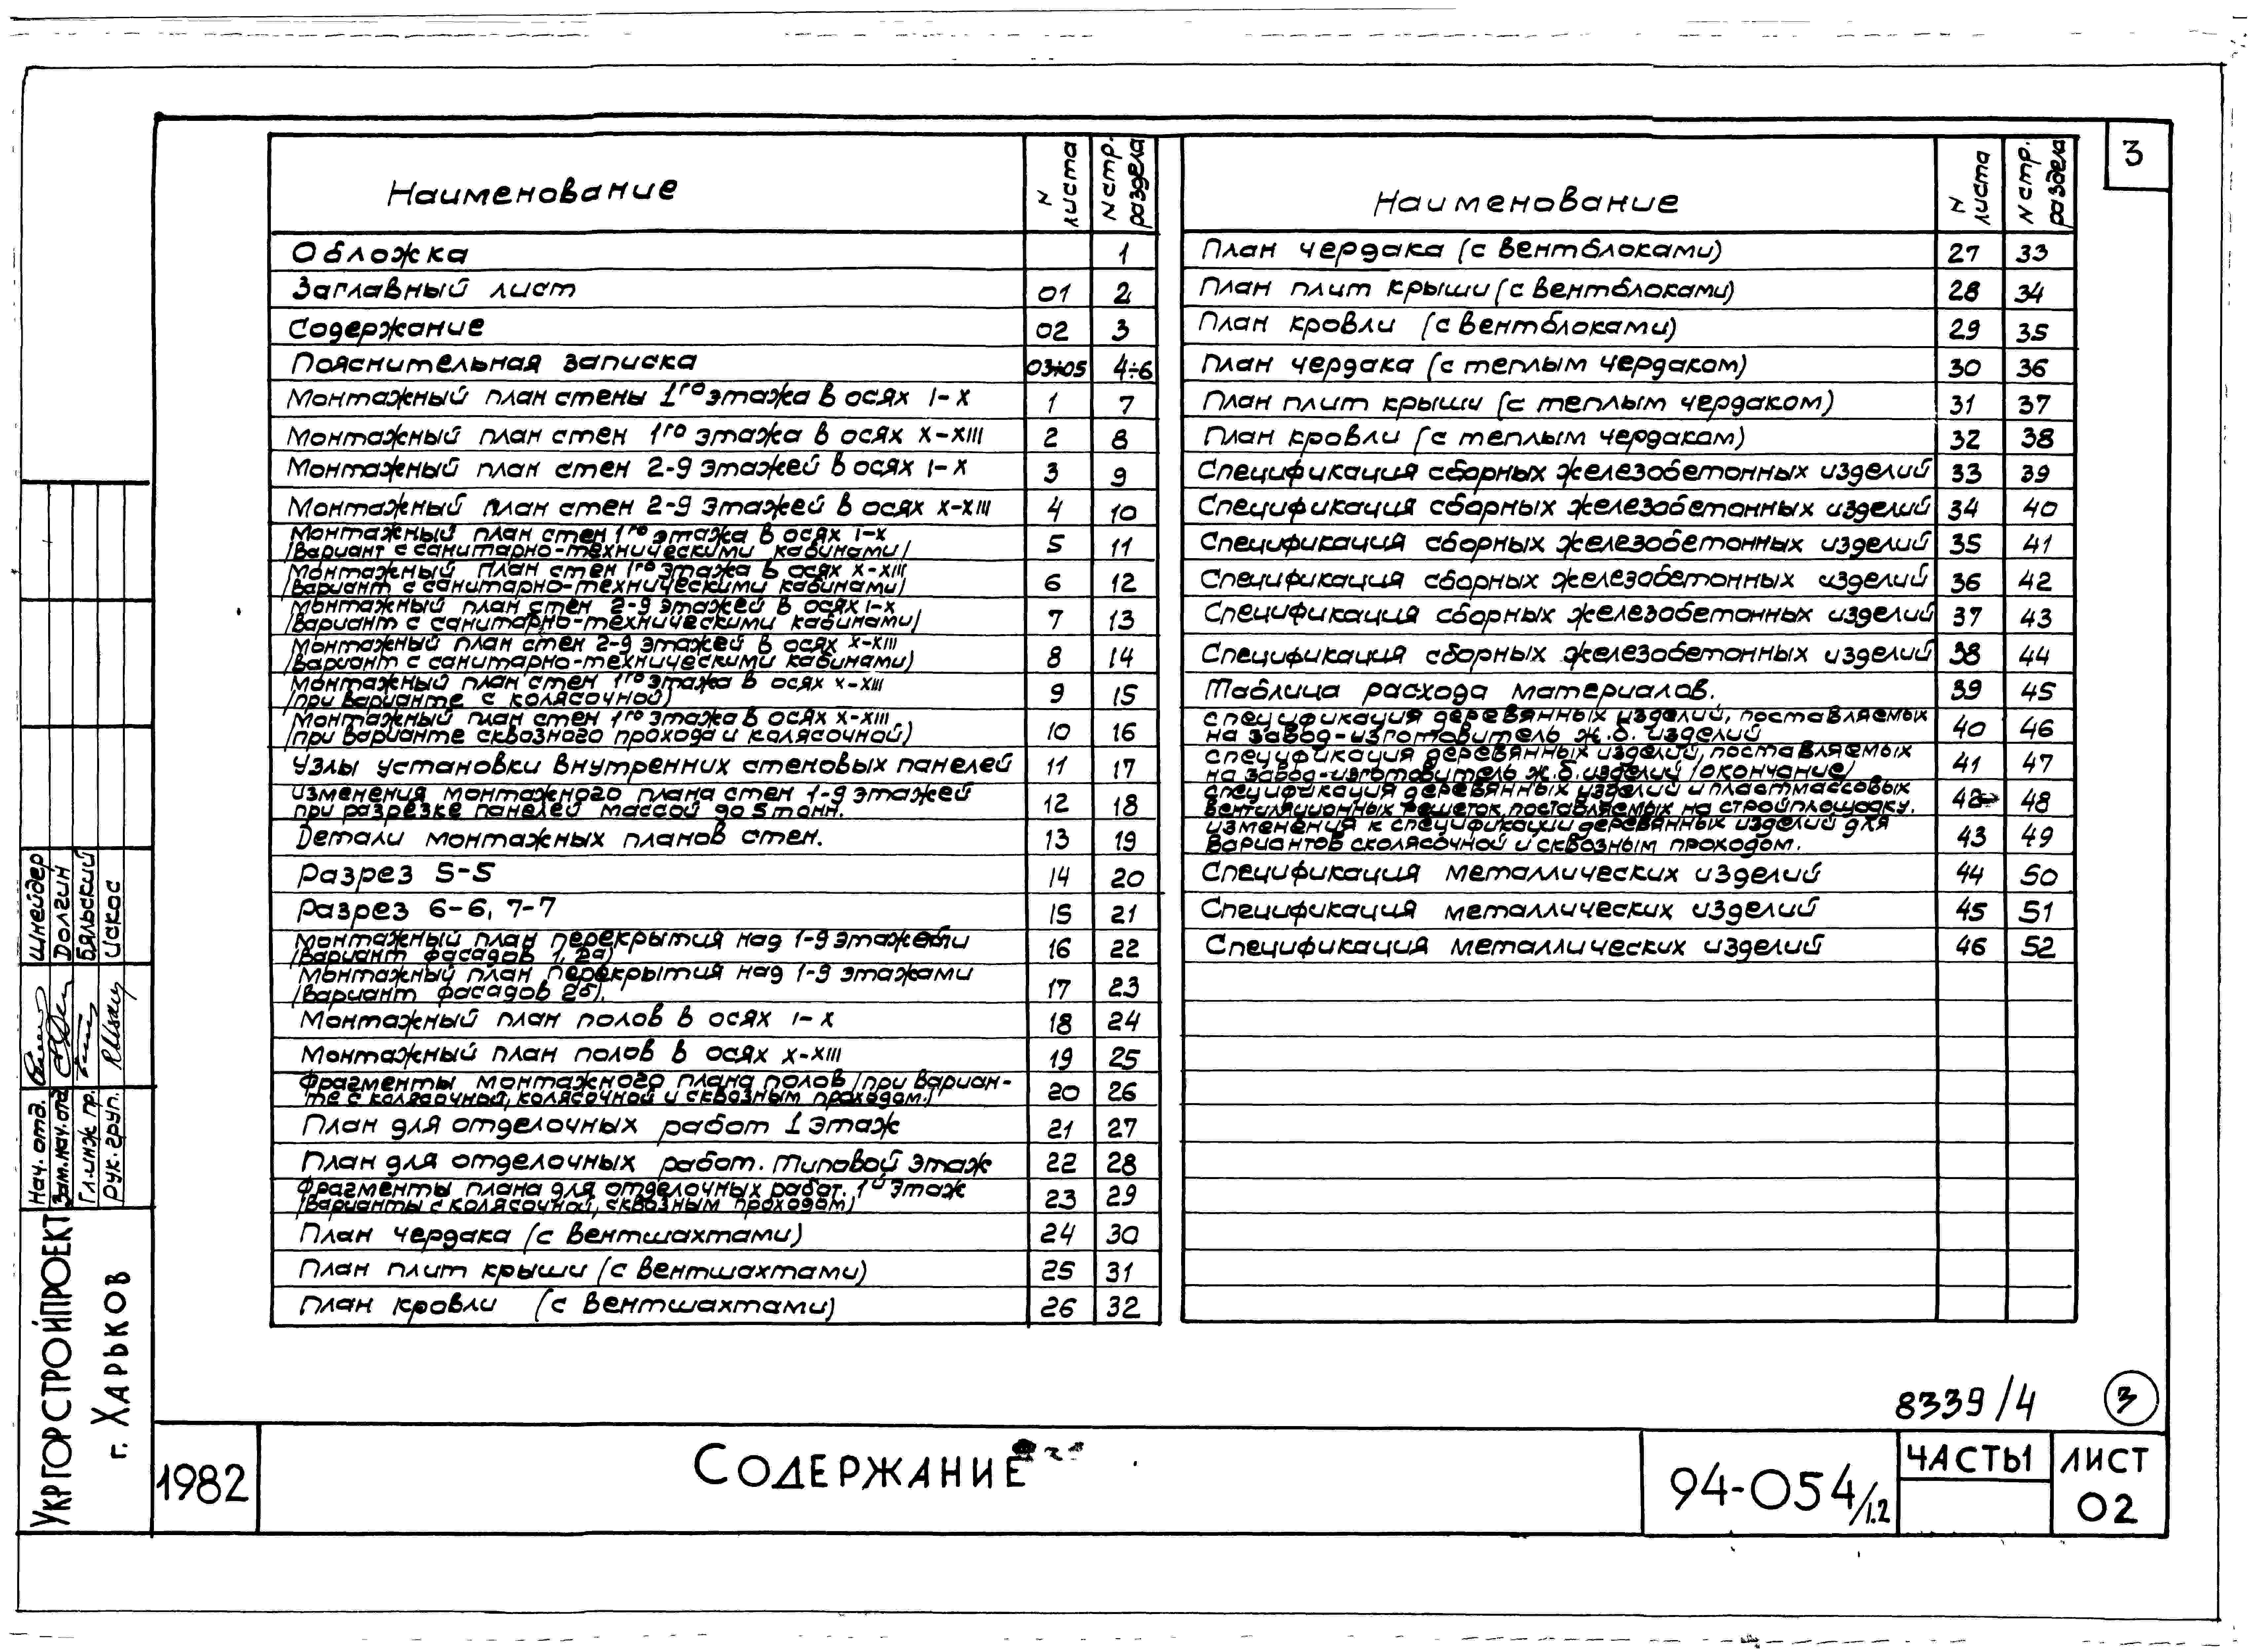 3
Наименование N листа N стр. раздела
Обложка 1
Заглавный лист 01 2
Содержание 02 3
Пояснительная записка 03÷05 4÷6
Монтажный план стены 1го этажа в осях I-X 1 7
Монтажный план стен 1го этажа в осях X-XIII 2 8
Монтажный план стен 2-9 этажей в осях I-X 3 9
Монтажный план стен 2-9 этажей в осях X-XIII 4 10
Монтажный план стен 1го этажа в осях I-X
/вариант с санитарно-техническими кабинами/ 5 11
Монтажный план стен 1го этажа в осях X-XIII
/вариант с санитарно-техническими кабинами) 6 12
Монтажный план стен 2-9 этажей в осях I-X
/вариант с санитарно-техническими кабинами/ 7 13
Монтажный план стен 2-9 этажей в осях X-XIII
/вариант с санитарно-техническими кабинами) 8 14
Монтажный план стен 1го этажа в осях X-XIII
/при варианте с колясочной) 9 15
Монтажный план стен 1го этажа в осях X-XIII
/при варианте сквозного прохода и колясочной) 10 16
Узлы установки внутренних стеновых панелей 11 17
Изменения монтажного плана стен 1-9 этажей
при разрезке панелей массой до 5 тонн. 12 18
Детали монтажных планов стен. 13 19
Разрез 5-5 14 20
Разрез 6-6, 7-7 15 21
Монтажный план перекрытия над 1-9 этажами
/вариант фасадов 1, 2а) 16 22
Монтажный план перекрытия над 1-9 этажами
/вариант фасадов 2б). 17 23
Монтажный план полов в осях I-X 18 24
Монтажный план полов в осях X-XIII 19 25
Фрагменты монтажного плана полов /при вариан-
те с колясочной, колясочной и сквозным проходом./ 20 26
План для отделочных работ 1 этаж 21 27
План для отделочных работ. Типовой этаж 22 28
Фрагменты плана для отделочных работ. 1й этаж
/варианты с колясочной, сквозным проходом) 23 29
План чердака (с вентшахтами) 24 30
План плит крыши (с вентшахтами) 25 31
План кровли (с вентшахтами) 26 32
Наименование N листа N стр. раздела
План чердака (с вентблоками) 27 33
План плит крыши (с вентблоками) 28 34
План кровли (с вентблоками) 29 35
План чердака (с теплым чердаком) 30 36
План плит крыши (с теплым чердаком) 31 37
План кровли (с теплым чердаком) 32 38
Спецификация сборных железобетонных изделий 33 39
Спецификация сборных железобетонных изделий 34 40
Спецификация сборных железобетонных изделий 35 41
Спецификация сборных железобетонных изделий 36 42
Спецификация сборных железобетонных изделий 37 43
Спецификация сборных железобетонных изделий 38 44
Таблица расхода материалов. 39 45
Спецификация деревянных изделий, поставляемых
на завод-изготовитель ж.б. изделий 40 46
Спецификация деревянных изделий, поставляемых
на завод-изготовитель ж.б. изделий /окончание/ 41 47
Спецификация деревянных изделий и пластмассовых
вентиляционных решеток, поставляемых на стройплощадку. 42 48
Изменения к спецификации деревянных изделий для
вариантов с колясочной и сквозным проходом. 43 49
Спецификация металлических изделий 44 50
Спецификация металлических изделий 45 51
Спецификация металлических изделий 46 52
Шнейдер
Долгин
Бяльский
Искос
Нач. отд.
Зам.нач.отд
Гл.инж пр.
Рук. груп.
Укргорстройпроект
г. Харьков
8339/4
3
1982
Содержание
94-054/1.2
Часть1
Лист
02